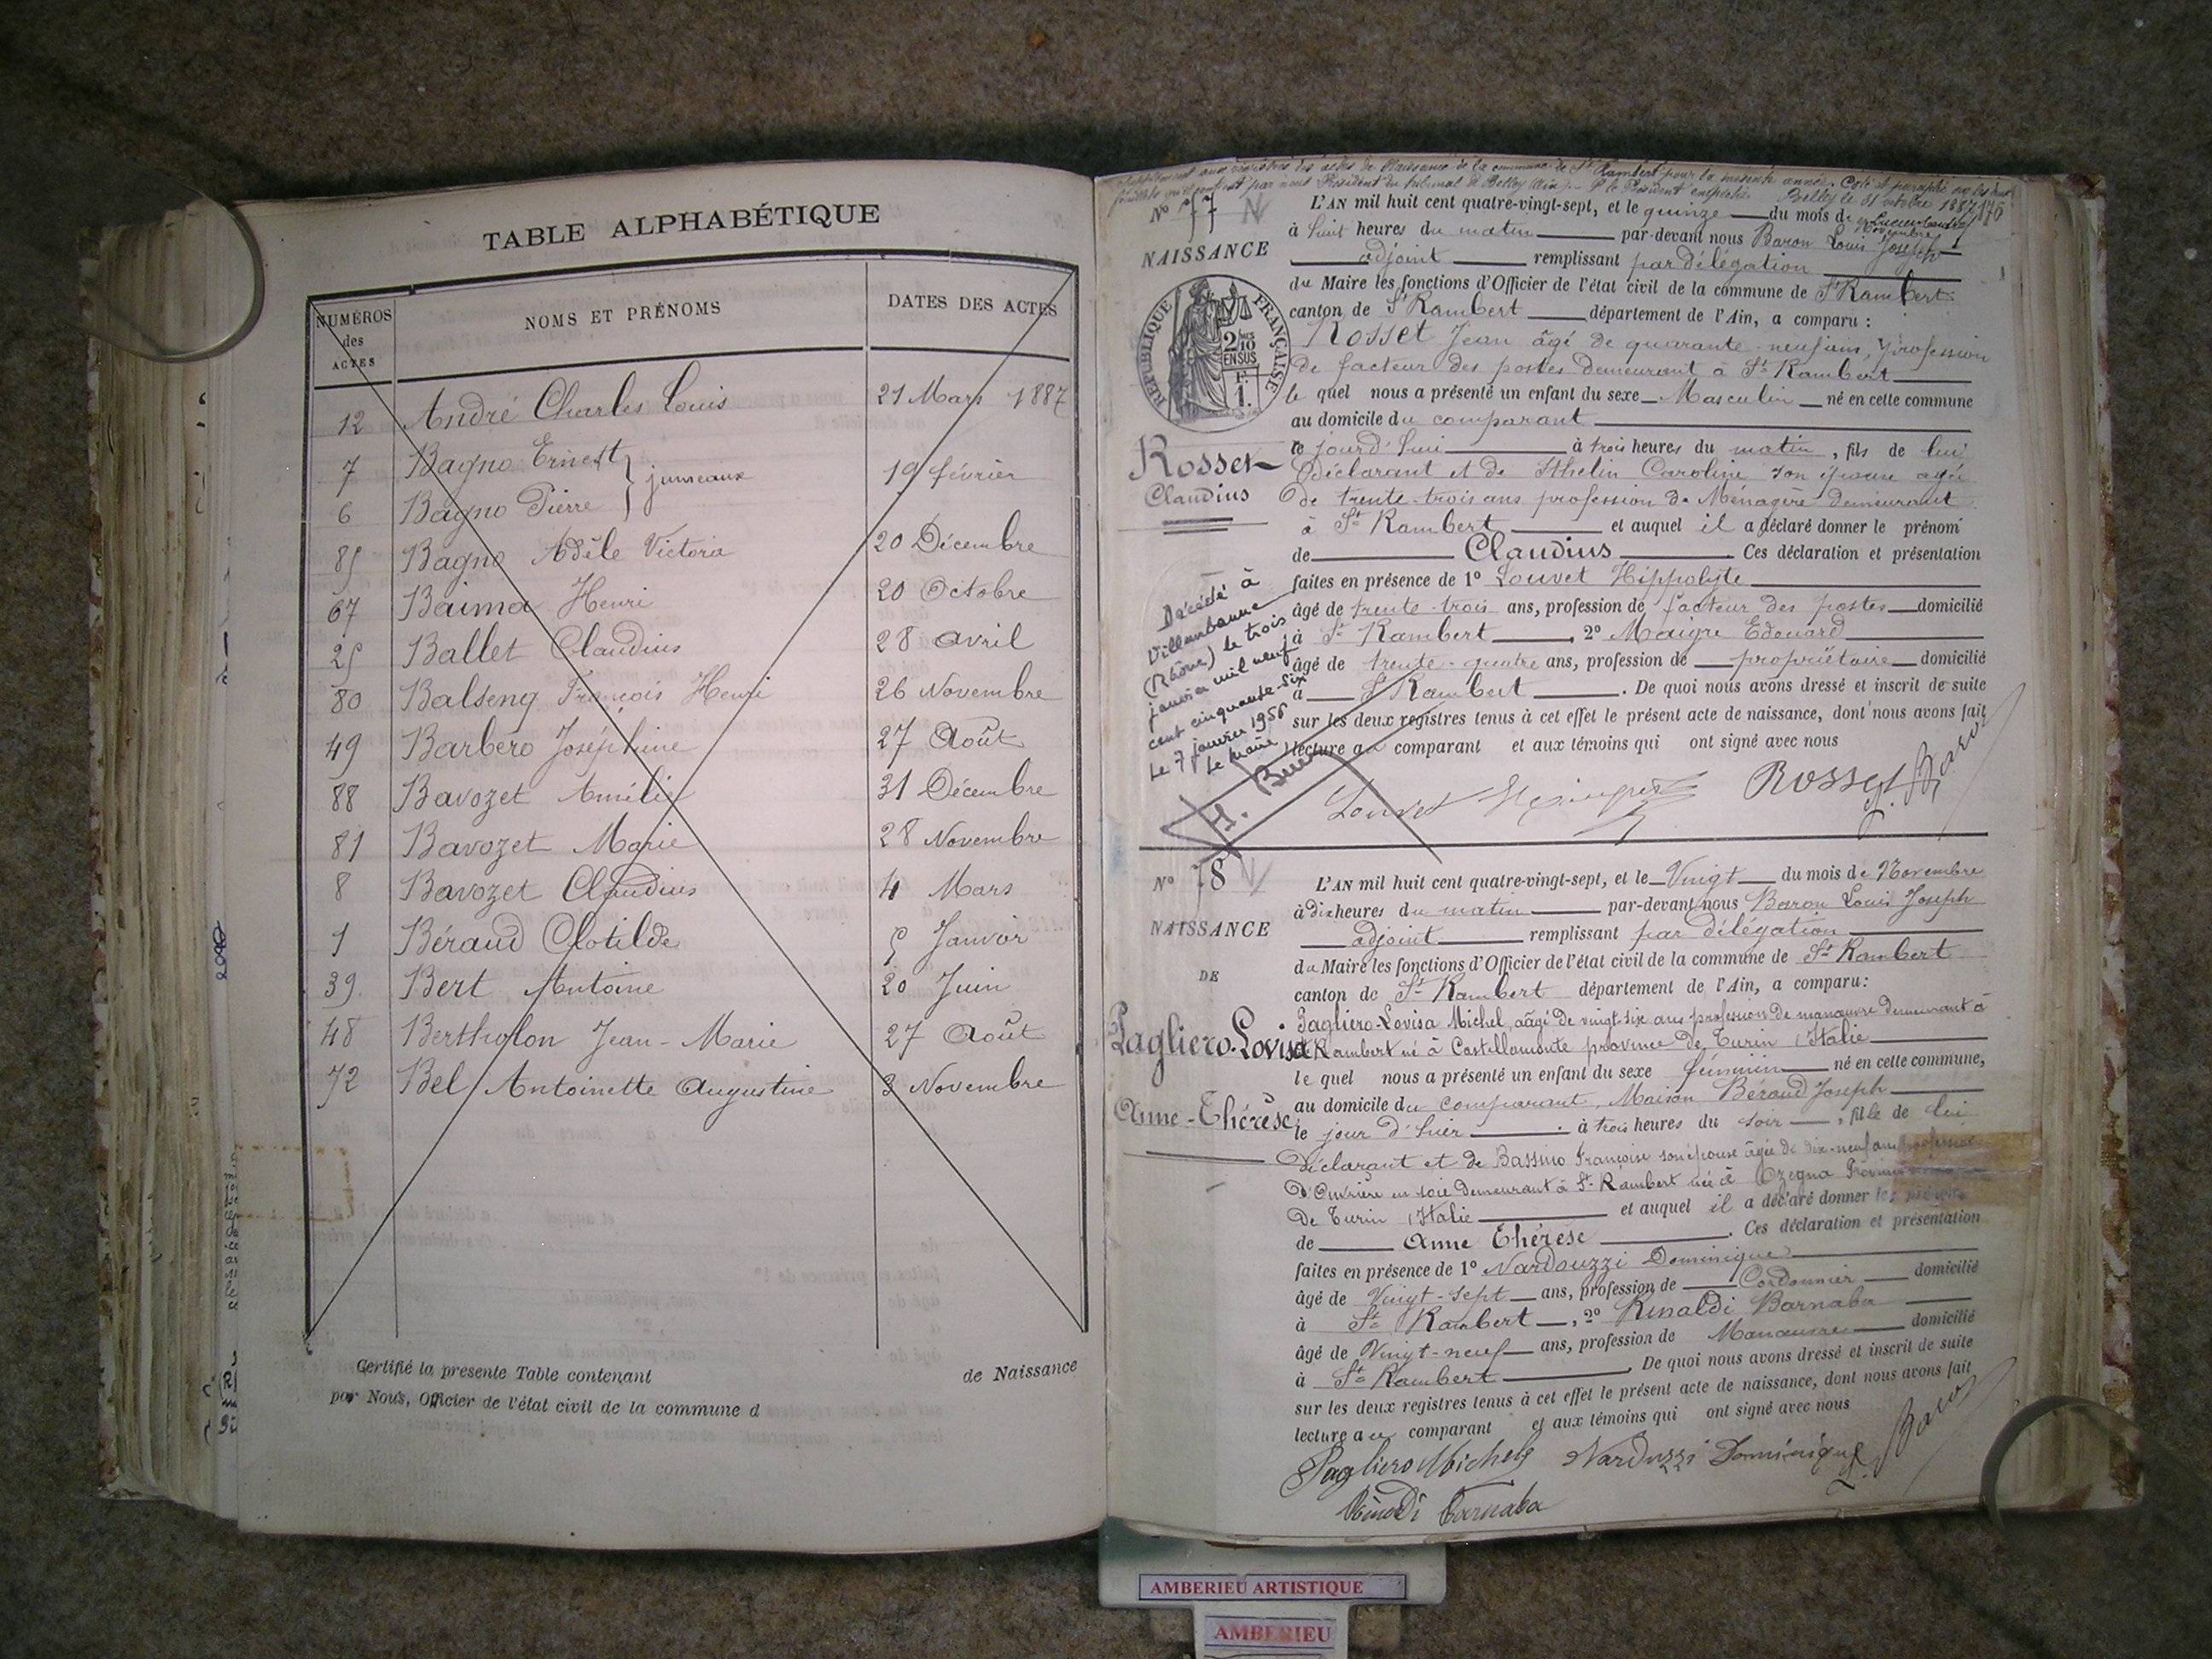 TABLE ALPHABÉTIQUE
NUMÉROS des ACTES NOMS ET PRÉNOMS DATES DES ACTES
12 André Charles Louis 21 Mars 1887
7 Bagno Ernest } jumeaux 19 février
6 Bagno Pierre
85 Bagno Adèle Victoria 20 Décembre
67 Baima Henri 20 Octobre
25 Ballet Claudius 28 avril
80 Balseng François Henri 26 Novembre
49 Barbero Joséphine 27 Août
88 Bavozet Amélie 31 Décembre
81 Bavozet Marie 28 Novembre
8 Bavozet Claudius 4 Mars
1 Béraud Clotilde 5 Janvier
39 Bert Antoine 20 Juin
48 Bertholon Jean-Marie 27 Août
72 Bel Antoinette Augustine 3 Novembre
Certifié la presente Table contenant de Naissance
par Nous, Officier de l'état civil de la commune d
aux registres des actes de Naissance de la commune de St Rambert pour la présente année. Coté et paraphé
par nous Président du tribunal de Belley (Ain). - P. le Président empêché. Belley le 31 octobre 1887
176
No 77 N
NAISSANCE
RÉPUBLIQUE FRANÇAISE
2 10 EN SUS
F. 1.
Rosset
Claudius
L'AN mil huit cent quatre-vingt-sept, et le quinze du mois de Novembre
à huit heures du matin par-devant nous Baron Louis Joseph
adjoint remplissant par délégation
du Maire les fonctions d'Officier de l'état civil de la commune de St Rambert
canton de St Rambert département de l'Ain, a comparu :
Rosset Jean âgé de quarante-neuf ans, profession
de facteur des postes demeurant à St Rambert
le quel nous a présenté un enfant du sexe Masculin né en cette commune
au domicile du comparant
ce jourd'hui à trois heures du matin, fils de lui
Déclarant et de Sthelin Caroline son épouse agée
de trente-trois ans profession de Ménagère demeurant
à St Rambert et auquel il a déclaré donner le prénom
de Claudius Ces déclaration et présentation
faites en présence de 1º Louvet Hippolyte
âgé de trente-trois ans, profession de facteur des postes domicilié
à St Rambert, 2º Maigre Edouard
âgé de trente-quatre ans, profession de propriétaire domicilié
à St Rambert. De quoi nous avons dressé et inscrit de suite
sur les deux registres tenus à cet effet le présent acte de naissance, dont nous avons fait
lecture au comparant et aux témoins qui ont signé avec nous
Décédé à
Villeurbanne
(Rhône) le trois
janvier mil neuf
cent cinquante-six
Le 7 janvier 1956
Le Maire
Louvet Rosset Baron
No 78 N
NAISSANCE
DE
Pagliero-Lovisa
Anne-Thérèse
L'AN mil huit cent quatre-vingt-sept, et le Vingt du mois de Novembre
à dix heures du matin par-devant nous Baron Louis Joseph
adjoint remplissant par délégation
du Maire les fonctions d'Officier de l'état civil de la commune de St Rambert
canton de St Rambert département de l'Ain, a comparu:
Pagliero-Lovisa Michel, âgé de vingt-six ans profession de manœuvre demeurant à
St Rambert né à Castellamonte province de Turin (Italie
le quel nous a présenté un enfant du sexe féminin né en cette commune,
au domicile du comparant, Maison Béraud Joseph
le jour d'hier à trois heures du soir, fille de lui
Déclarant et de Bassino Françoise son épouse âgée de dix-neuf ans profession
D'Ouvrière en soie Demeurant à St Rambert née à Ozegna Province
De Turin (Italie et auquel il a déclaré donner les prénoms
de Anne Thérèse. Ces déclaration et présentation
faites en présence de 1º Nardouzzi Dominique
âgé de Vingt-sept ans, profession de Cordonnier domicilié
à St Rambert, 2º Rinaldi Barnaba
âgé de Vingt-neuf ans, profession de Manœuvre domicilié
à St Rambert. De quoi nous avons dressé et inscrit de suite
sur les deux registres tenus à cet effet le présent acte de naissance, dont nous avons fait
lecture au comparant et aux témoins qui ont signé avec nous
Pagliero Michel Narduzzi Dominique Baron
Rinaldi Barnaba
AMBERIEU ARTISTIQUE
AMBERIEU